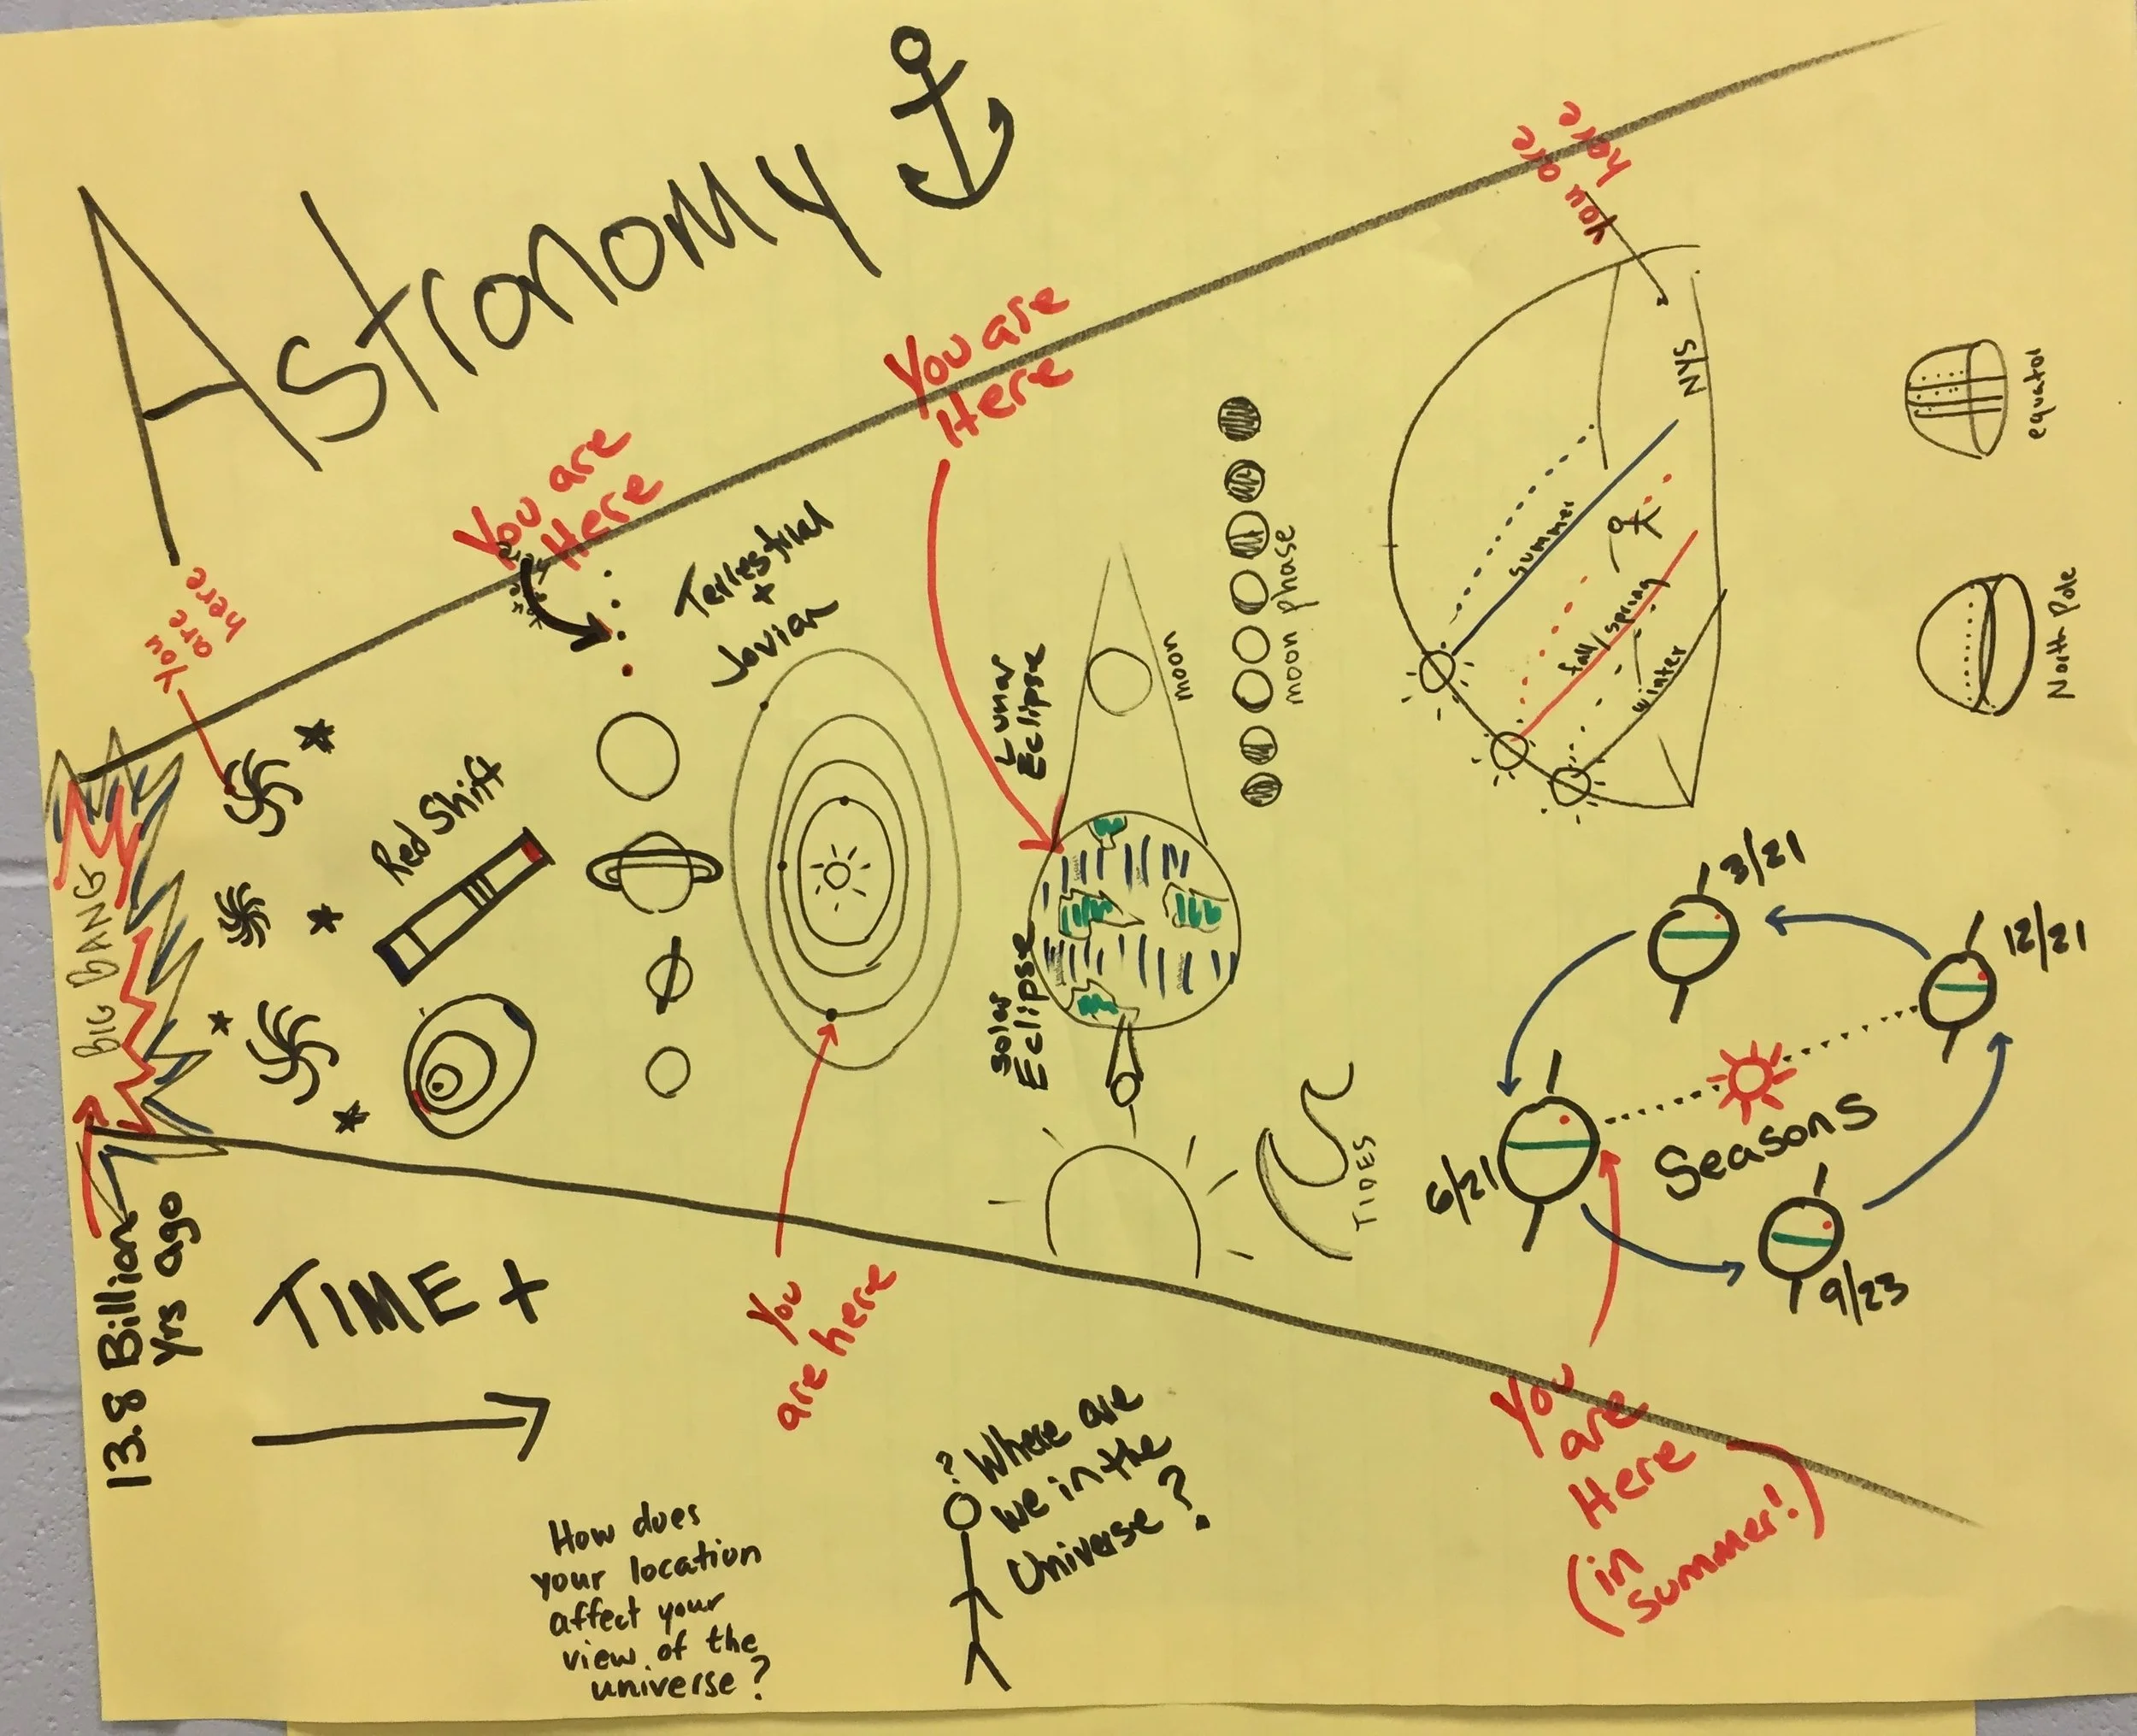 Astronomy
You are
here
You are
Here
You are
Here
you are
here
BIG BANG
Red Shift
Terrestrial
+
Jovian
Lunar
Eclipse
moon
Solar
Eclipse
moon phase
TIDES
NYS
summer
fall/spring
winter
equator
North Pole
3/21
12/21
6/21
9/23
Seasons
13.8 Billion
yrs ago
TIME +
You
are here
You
are
Here
(in
summer!)
How does
your location
affect your
view of the
universe?
? Where are
we in the
Universe?